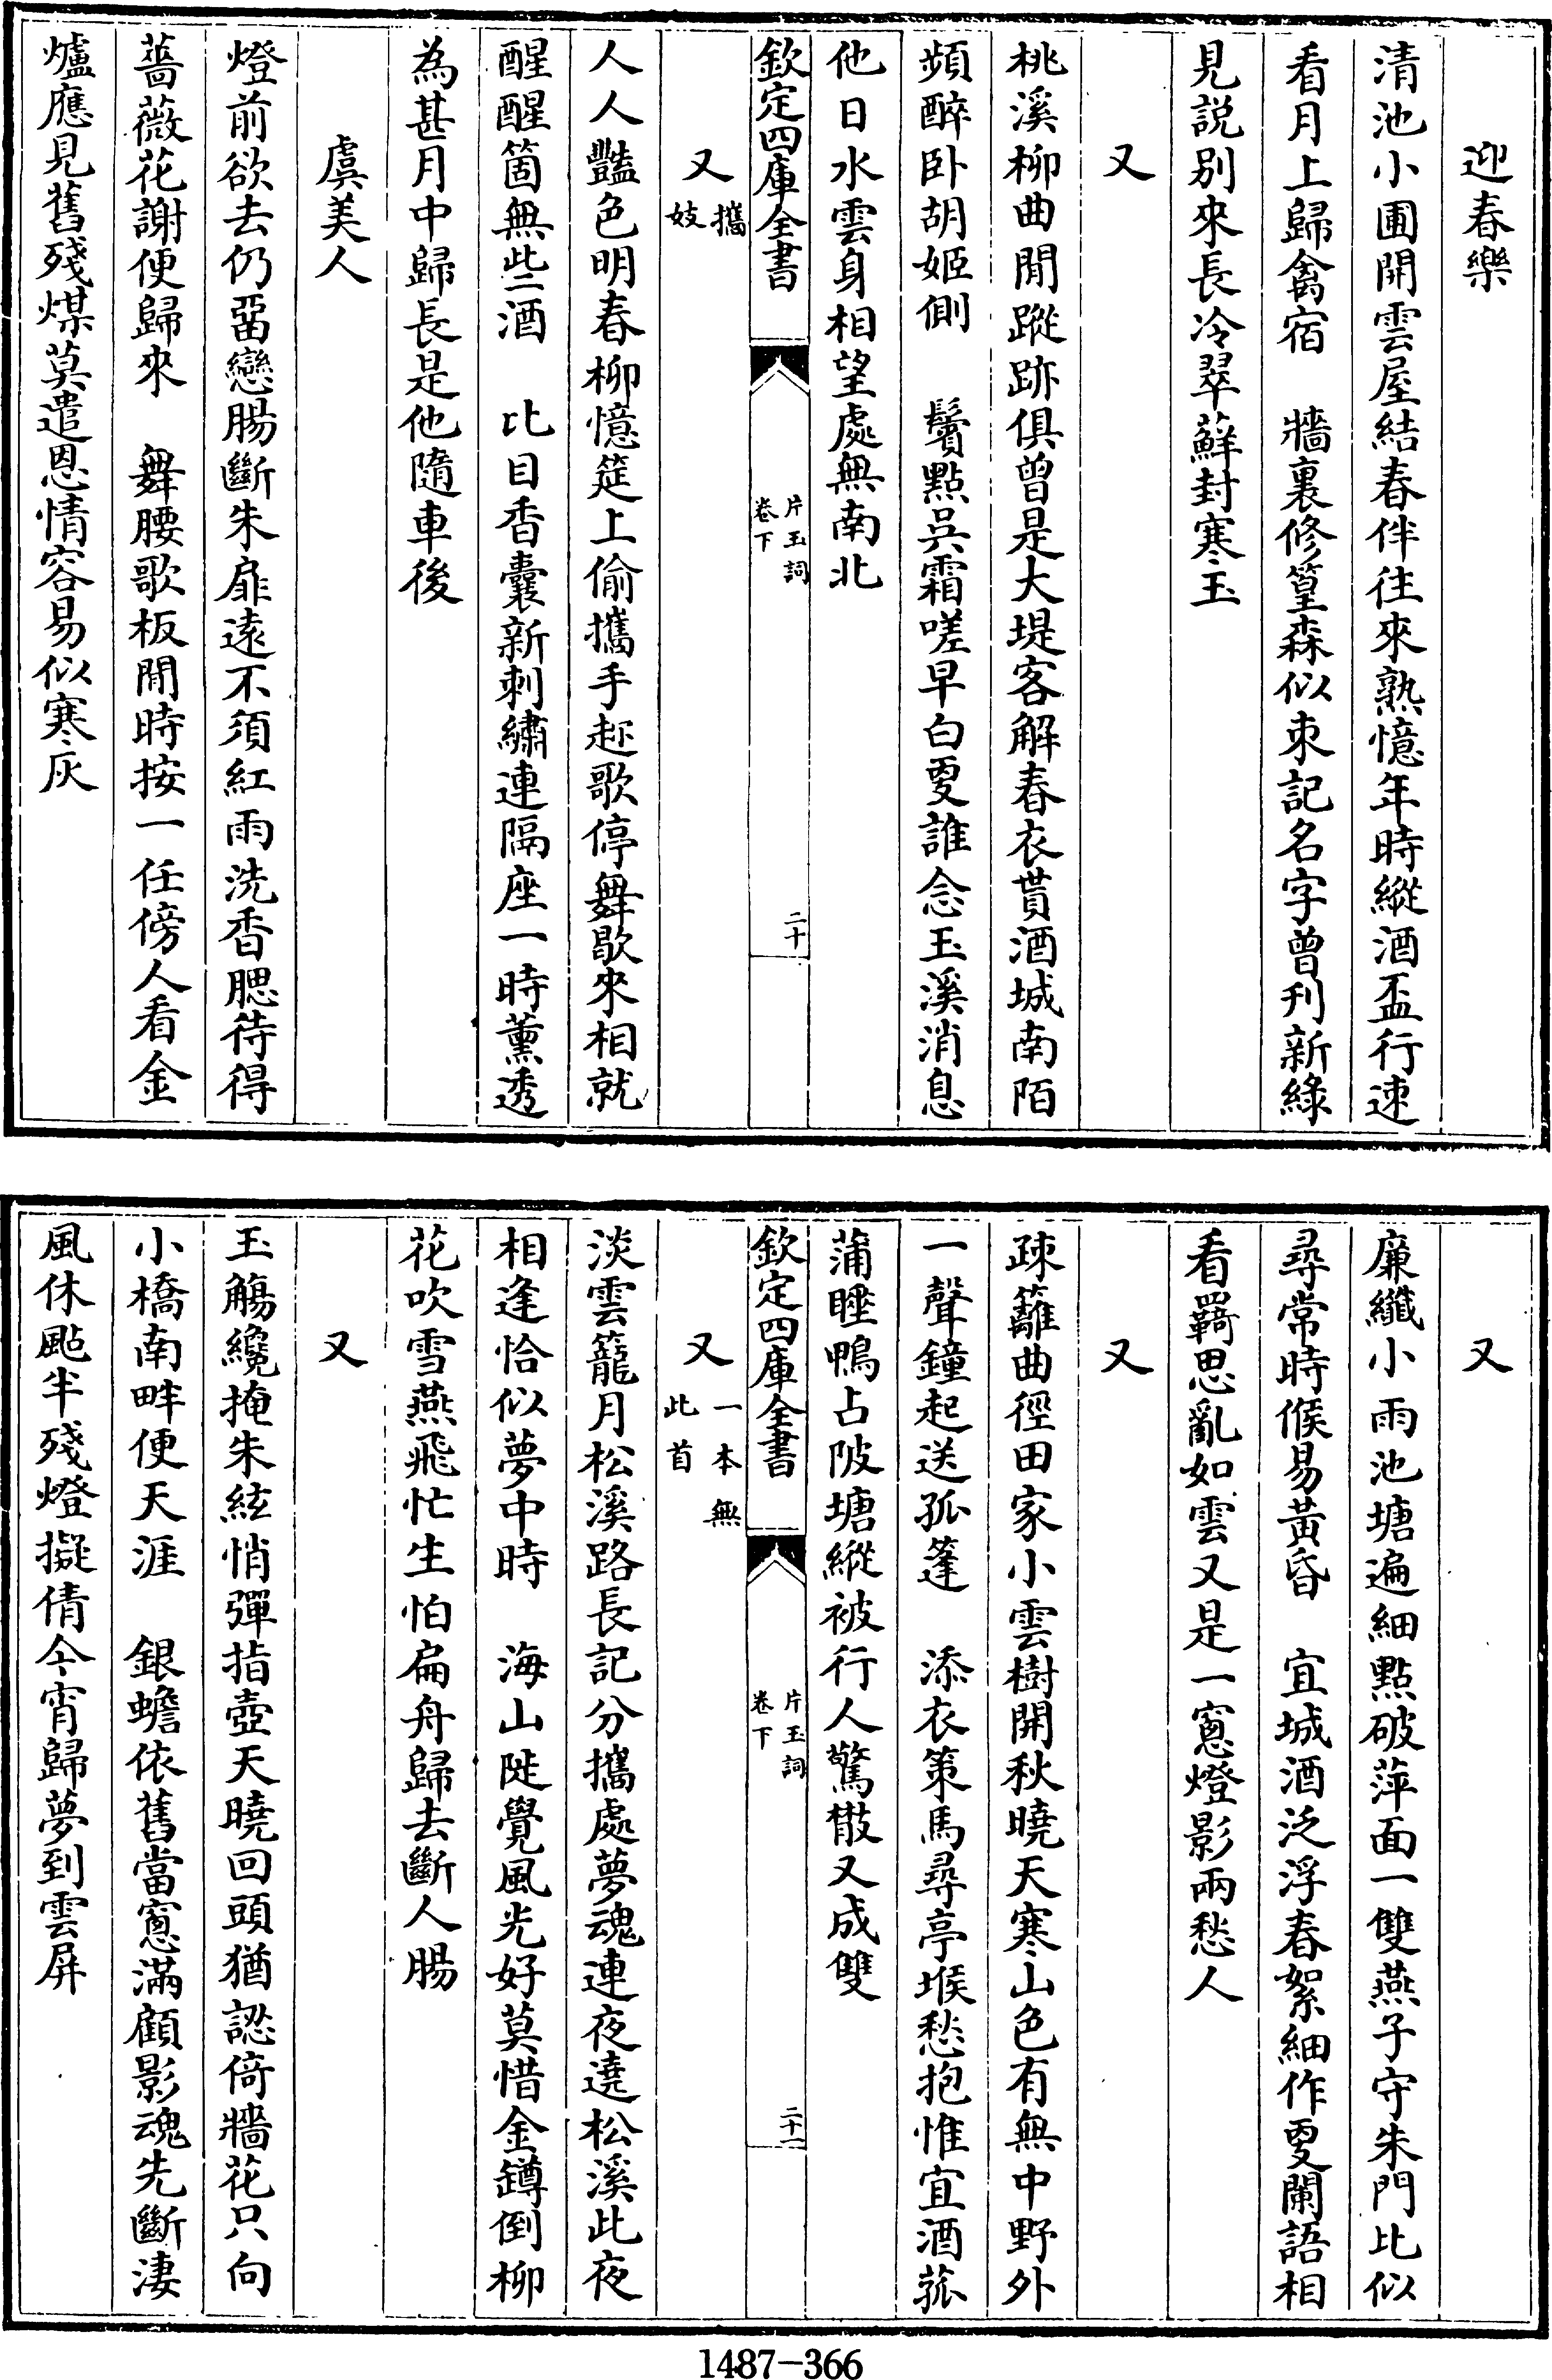 迎春樂
清池小圃開雲屋結春伴往來熟憶年時縱酒盃行速
看月上歸禽宿　牆裏修篁森似束記名字曾刋新綠
見説别來長冷翠蘚封寒玉
又
桃溪柳曲閒蹤跡俱曾是大堤客解春衣貰酒城南陌
頻醉卧胡姬側　鬢點呉霜嗟早白更誰念玉溪消息
他日水雲身相望處無南北
欽定四庫全書
片玉詞
卷下
二十
又攜妓
人人豔色明春柳憶筵上偷攜手趂歌停舞歇來相就
醒醒箇無些酒　比目香囊新刺繡連隔座一時薰透
為甚月中歸長是他隨車後
虞美人
燈前欲去仍留戀腸斷朱扉遠不須紅雨洗香腮待得
薔薇花謝便歸來　舞腰歌板閒時按一任傍人看金
爐應見舊殘煤莫遣恩情容易似寒灰
又
廉纖小雨池塘遍細點破萍面一雙燕子守朱門比似
尋常時候易黃昏　宜城酒泛浮春絮細作更闌語相
看羇思亂如雲又是一窻燈影兩愁人
又
疎籬曲徑田家小雲樹開秋曉天寒山色有無中野外
一聲鐘起送孤篷　添衣策馬尋亭堠愁抱惟宜酒菰
蒲睡鴨占陂塘縱被行人驚散又成雙
欽定四庫全書
片玉詞
卷下
二十一
又一本無此首
淡雲籠月松溪路長記分攜處夢魂連夜遶松溪此夜
相逢恰似夢中時　海山陡覺風光好莫惜金罇倒柳
花吹雪燕飛忙生怕扁舟歸去斷人腸
又
玉觴纔掩朱絃悄彈指壺天曉回頭猶認倚牆花只向
小橋南畔便天涯　銀蟾依舊當窻滿顧影魂先斷淒
風休颭半殘燈擬倩今宵歸夢到雲屏
1487－366